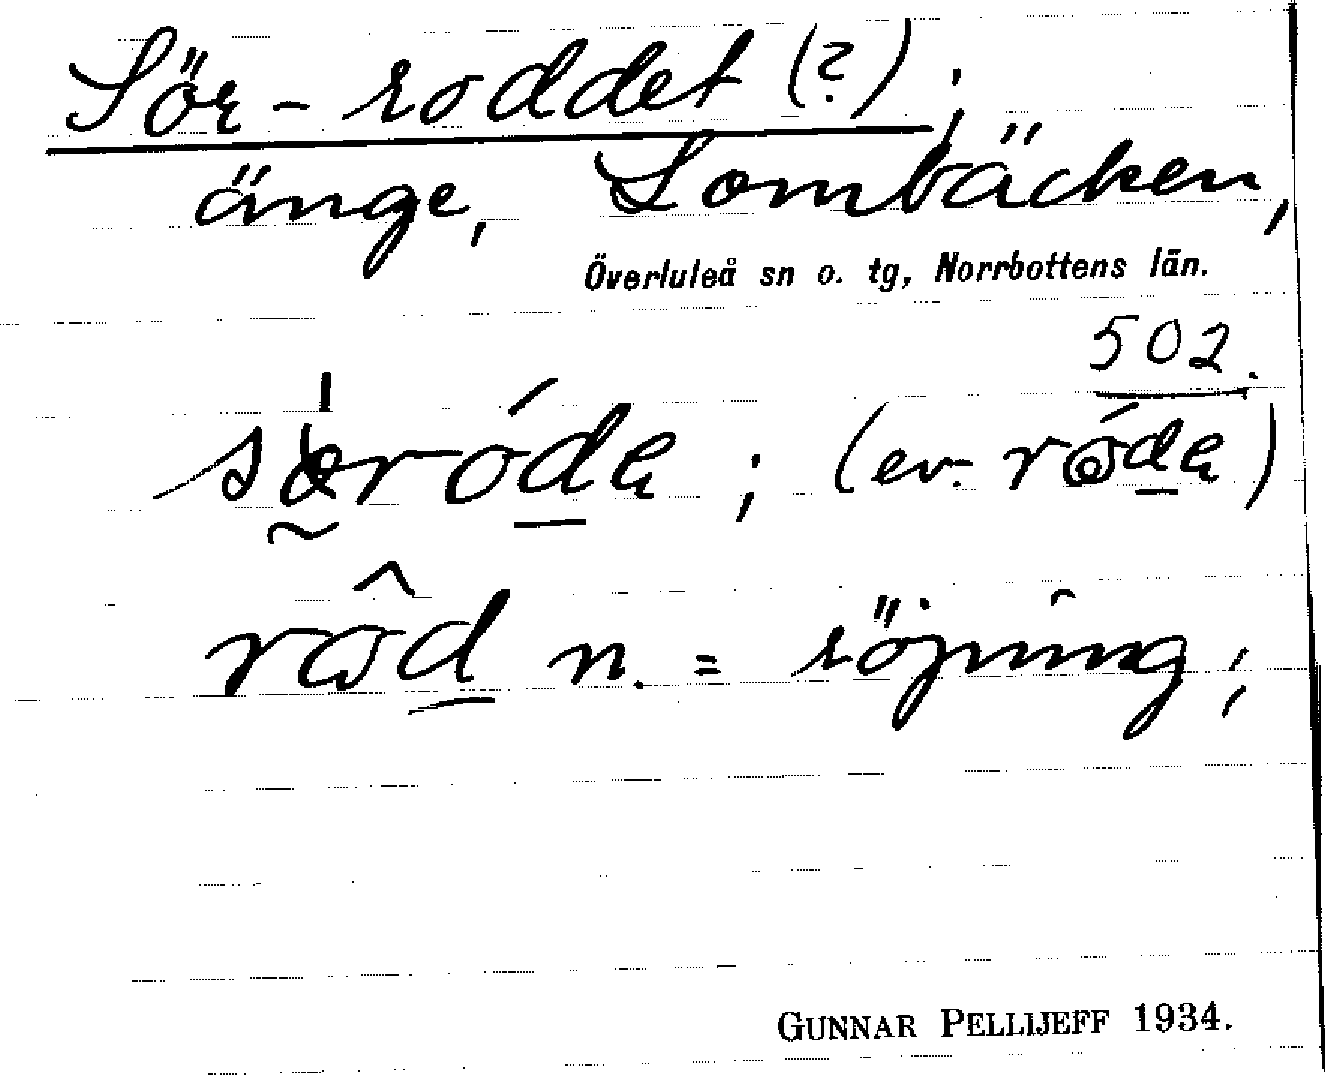 Sör-roddet (?);
änge, Lombäcken,
Överluleå sn o. tg, Norrbottens län.
502.
sörόda; (ev. rόda)
rôd n. = röjning;
GUNNAR PELLIJEFF 1934.